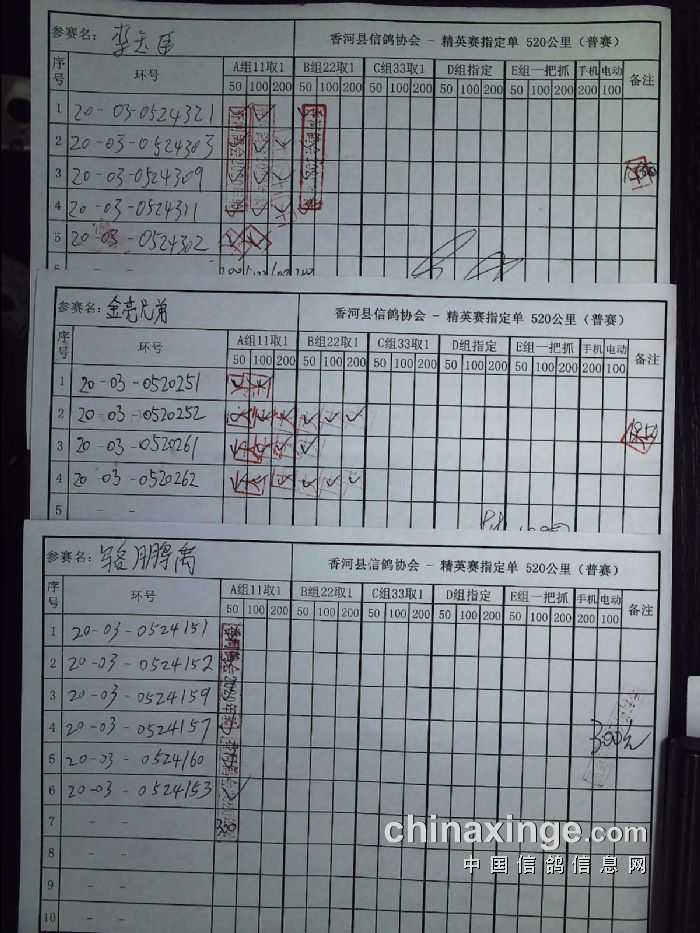 参赛名: 李玉臣
香河县信鸽协会 - 精英赛指定单 520公里（普赛）
序号 环号 A组11取1 B组22取1 C组33取1 D组指定 E组一把抓 手机 电动 备注
50 100 200 50 100 200 50 100 200 50 100 200 50 100 200 200 100
1 20-03-0524321
2 20-03-0524303
3 20-03-0524309
4 20-03-0524311
5 20-03-0524302
6 - -
参赛名: 金亮兄弟
香河县信鸽协会 - 精英赛指定单 520公里（普赛）
序号 环号 A组11取1 B组22取1 C组33取1 D组指定 E组一把抓 手机 电动 备注
50 100 200 50 100 200 50 100 200 50 100 200 50 100 200 200 100
1 20-03-0520251
2 20-03-0520252
3 20-03-0520261
4 20-03-0520262
5
参赛名: 骆朋
香河县信鸽协会 - 精英赛指定单 520公里（普赛）
序号 环号 A组11取1 B组22取1 C组33取1 D组指定 E组一把抓 手机 电动 备注
50 100 200 50 100 200 50 100 200 50 100 200 50 100 200 200 100
1 20-03-0524151
2 20-03-0524152
3 20-03-0524159
4 20-03-0524157 300元
5 20-03-0524160
6 20-03-0524153
7 - - 300
8 - -
9 - -
10 - -
chinaxinge.com
中国信鸽信息网